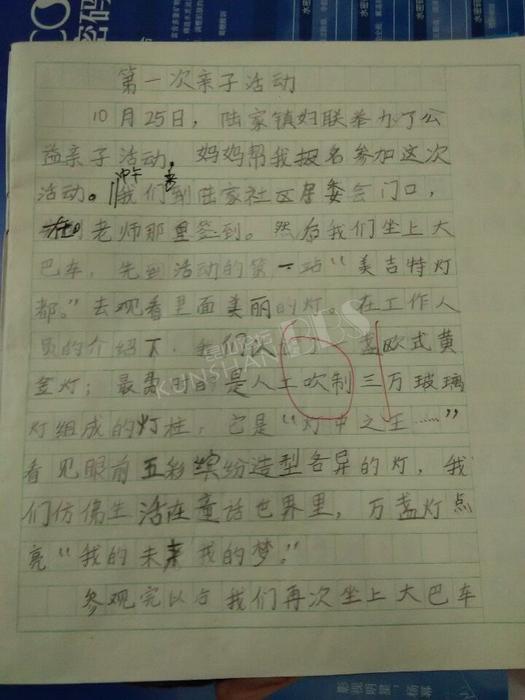 第一次亲子活动
10月25日，陆家镇妇联举办了公
益亲子活动，妈妈帮我报名参加这次
中午 
活动。我们到陆家社区居委会门口，
在老师那里签到。然后我们坐上大
巴车，先到活动的第一站“美吉特灯
都。”去观看里面美丽的灯。在工作人
员的介绍下，我们 欧式黄
金灯；最 的是人工吹制三万玻璃
灯组成的灯柱，它是“灯中之王……”
看见眼前五彩缤纷造型各异的灯，我
们仿佛生活在童话世界里，万盏灯点
亮“我的未来我的梦。”
参观完以后我们再次坐上大巴车